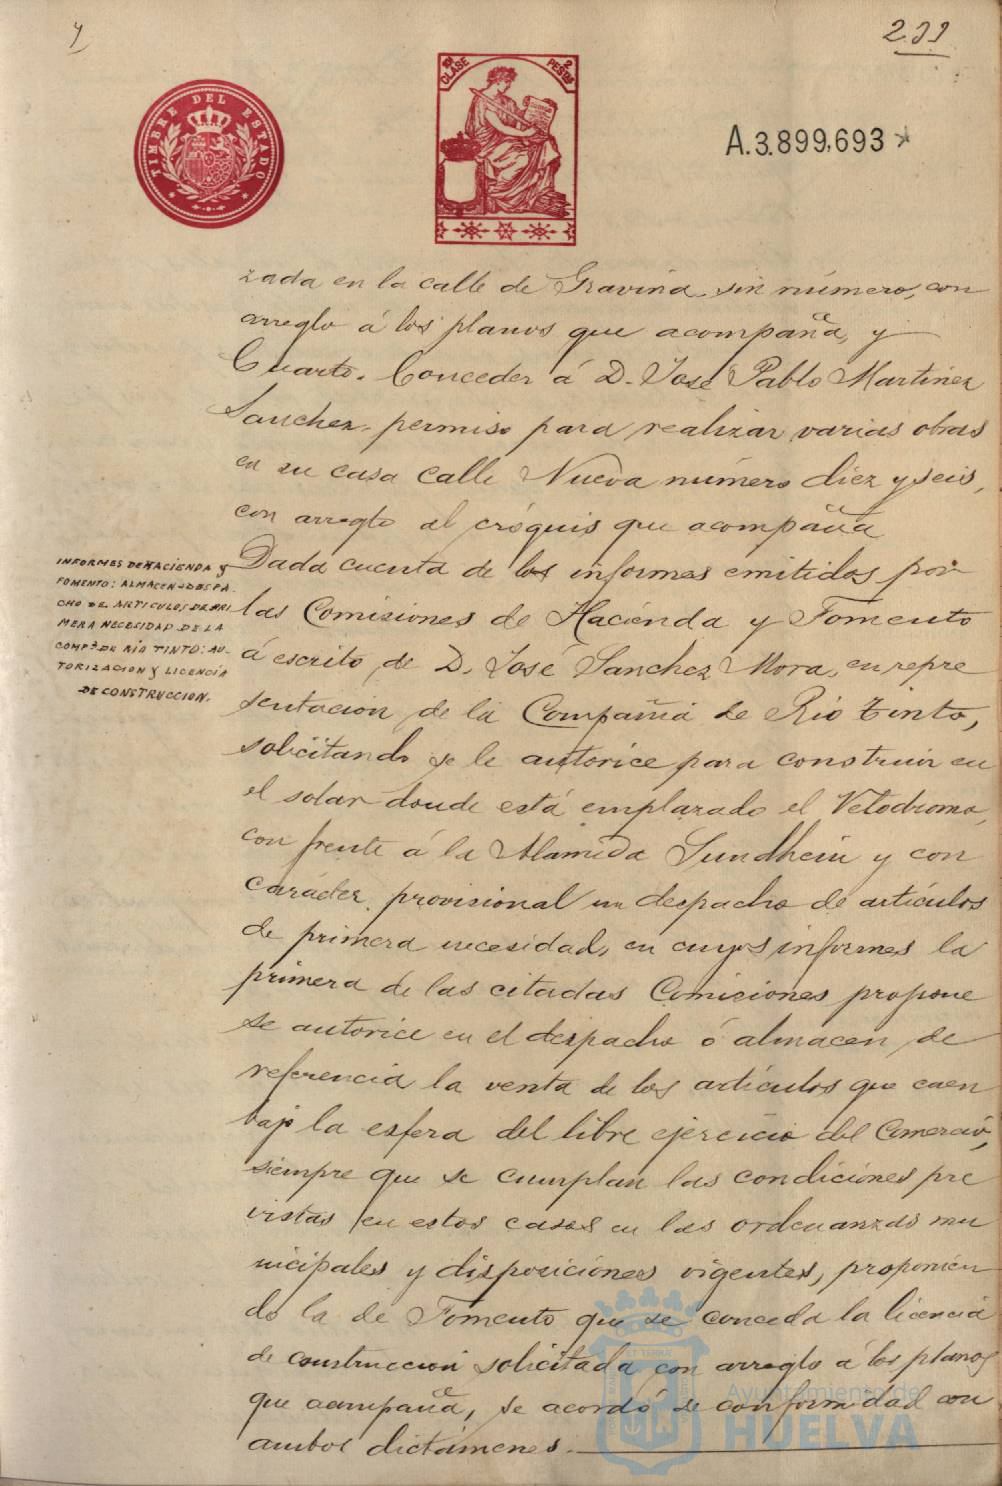 4
299
TIMBRE DEL ESTADO
CLASE
2 PESTAS
A.3.899,693 *
zada en la calle de Gravina, sin número, con
arreglo á los planos que acompaña, y
Cuarto. Conceder á D. José Pablo Martinez
Sanchez, permiso para realizar varias obras
en su casa calle Nueva número diez y seis,
con arreglo al cróquis que acompaña
INFORMES DE HACIENDA Y
FOMENTO: ALMACEN O DESPA-
CHO DE ARTICULOS DE PRI
MERA NECESIDAD DE LA
COMPª DE RIO TINTO: AU-
TORIZACION Y LICENCIA
DE CONSTRUCCION.
Dada cuenta de los informes emitidos por
las Comisiones de Hacienda y Fomento
á escrito de D. José Sanchez Mora, en repre
sentación de la Compañia de Rio Tinto,
solicitando se le autorice para construir en
el solar donde está emplazado el Velodromo,
con frente á la Alameda Sundheim y con
carácter provisional un despacho de artículos
de primera necesidad, en cuyos informes la
primera de las citadas Comisiones propone
se autorice en el despacho ó almacen de
referencia la venta de los artículos que caen
bajo la esfera del libre ejercicio del Comercio,
siempre que se cumplan las condiciones pre
vistas en estos casos en las ordenanzas mu
nicipales y disposiciones vigentes, proponien
do la de Fomento que se conceda la licencia
de construccion solicitada con arreglo á los planos
que acompaña, se acordó de conformidad con
ambos dictámenes.
Ayuntamiento de
HUELVA